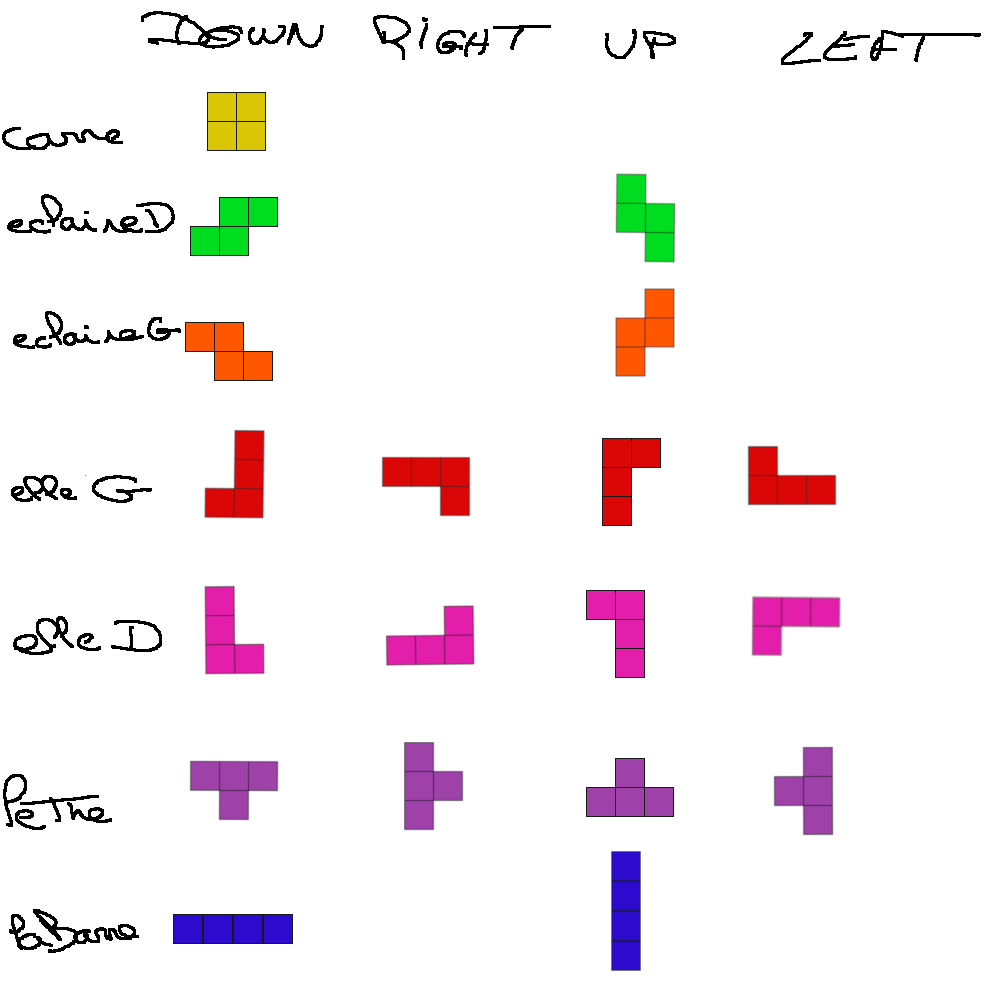 DOWN RIGHT UP LEFT
carre
eclaireD
eclaireG
elle G
elle D
leThe
laBarre